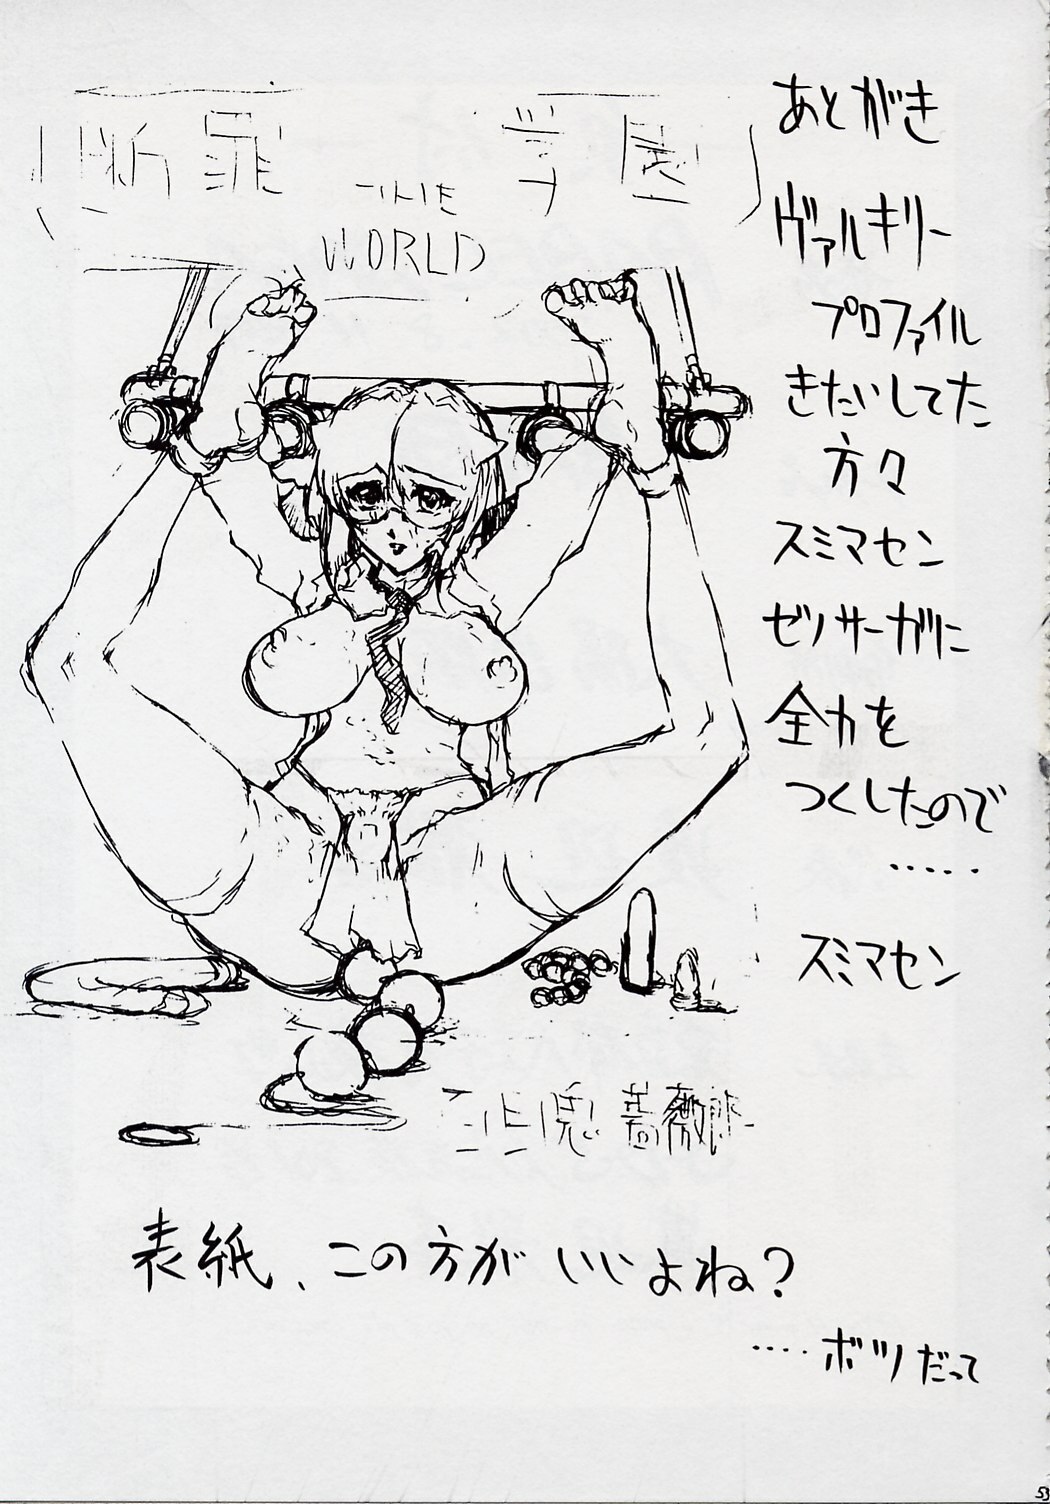 断罪 学園
THE
WORLD
あとがき
ヴァルキリー
プロファイル
きたいしてた
方々
スミマセン
ゼノサーガに
全力を
つくしたので
・・・・・
スミマセン
薔薇
表紙、この方がいいよね?
・・・・ボツだって
53